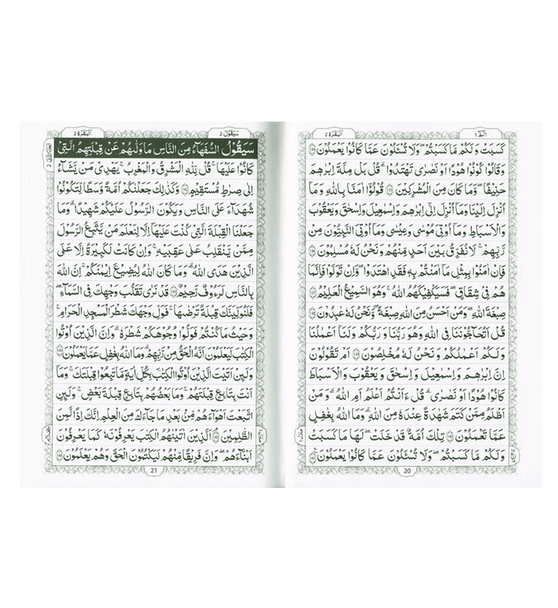 الٓمّٓ ١
اَلْبَقَرَة ٢
كَسَبَتْ وَلَكُمْ مَّا كَسَبْتُمْ ۚ وَلَا تُسْـَٔلُوْنَ عَمَّا كَانُوْا يَعْمَلُوْنَ
وَقَالُوْا كُوْنُوْا هُوْدًا اَوْ نَصٰرٰى تَهْتَدُوْا ؕ قُلْ بَلْ مِلَّةَ اِبْرٰهٖمَ
حَنِيْفًا ؕ وَمَا كَانَ مِنَ الْمُشْرِكِيْنَ قُوْلُوْٓا اٰمَنَّا بِاللّٰهِ وَمَآ
اُنْزِلَ اِلَيْنَا وَمَآ اُنْزِلَ اِلٰٓى اِبْرٰهٖمَ وَاِسْمٰعِيْلَ وَاِسْحٰقَ وَيَعْقُوْبَ
وَالْاَسْبَاطِ وَمَآ اُوْتِيَ مُوْسٰى وَعِيْسٰى وَمَآ اُوْتِيَ النَّبِيُّوْنَ مِنْ
رَّبِّهِمْ ۚ لَا نُفَرِّقُ بَيْنَ اَحَدٍ مِّنْهُمْ ۖ وَنَحْنُ لَهٗ مُسْلِمُوْنَ
فَاِنْ اٰمَنُوْا بِمِثْلِ مَآ اٰمَنْتُمْ بِهٖ فَقَدِ اهْتَدَوْا ۚ وَاِنْ تَوَلَّوْا فَاِنَّمَا
هُمْ فِيْ شِقَاقٍ ۚ فَسَيَكْفِيْكَهُمُ اللّٰهُ ۚ وَهُوَ السَّمِيْعُ الْعَلِيْمُ
صِبْغَةَ اللّٰهِ ۚ وَمَنْ اَحْسَنُ مِنَ اللّٰهِ صِبْغَةً ؗ وَّنَحْنُ لَهٗ عٰبِدُوْنَ
قُلْ اَتُحَآجُّوْنَنَا فِى اللّٰهِ وَهُوَ رَبُّنَا وَرَبُّكُمْ ۚ وَلَنَآ اَعْمَالُنَا
وَلَكُمْ اَعْمَالُكُمْ ۚ وَنَحْنُ لَهٗ مُخْلِصُوْنَ اَمْ تَقُوْلُوْنَ
اِنَّ اِبْرٰهٖمَ وَاِسْمٰعِيْلَ وَاِسْحٰقَ وَيَعْقُوْبَ وَالْاَسْبَاطَ
كَانُوْا هُوْدًا اَوْ نَصٰرٰى ؕ قُلْ ءَاَنْتُمْ اَعْلَمُ اَمِ اللّٰهُ ؕ وَمَنْ
اَظْلَمُ مِمَّنْ كَتَمَ شَهَادَةً عِنْدَهٗ مِنَ اللّٰهِ ؕ وَمَا اللّٰهُ بِغَافِلٍ
عَمَّا تَعْمَلُوْنَ تِلْكَ اُمَّةٌ قَدْ خَلَتْ ۚ لَهَا مَا كَسَبَتْ
وَلَكُمْ مَّا كَسَبْتُمْ ۚ وَلَا تُسْـَٔلُوْنَ عَمَّا كَانُوْا يَعْمَلُوْنَ
20
سَيَقُوْلُ ٢
اَلْبَقَرَة ٢
سَيَقُوْلُ السُّفَهَآءُ مِنَ النَّاسِ مَا وَلّٰىهُمْ عَنْ قِبْلَتِهِمُ الَّتِيْ
كَانُوْا عَلَيْهَا ؕ قُلْ لِّلّٰهِ الْمَشْرِقُ وَالْمَغْرِبُ ؕ يَهْدِيْ مَنْ يَّشَآءُ
اِلٰى صِرَاطٍ مُّسْتَقِيْمٍ وَكَذٰلِكَ جَعَلْنٰكُمْ اُمَّةً وَّسَطًا لِّتَكُوْنُوْا
شُهَدَآءَ عَلَى النَّاسِ وَيَكُوْنَ الرَّسُوْلُ عَلَيْكُمْ شَهِيْدًا ؕ وَمَا
جَعَلْنَا الْقِبْلَةَ الَّتِيْ كُنْتَ عَلَيْهَآ اِلَّا لِنَعْلَمَ مَنْ يَّتَّبِعُ الرَّسُوْلَ
مِمَّنْ يَّنْقَلِبُ عَلٰى عَقِبَيْهِ ؕ وَاِنْ كَانَتْ لَكَبِيْرَةً اِلَّا عَلَى
الَّذِيْنَ هَدَى اللّٰهُ ؕ وَمَا كَانَ اللّٰهُ لِيُضِيْعَ اِيْمَانَكُمْ ؕ اِنَّ اللّٰهَ
بِالنَّاسِ لَرَءُوْفٌ رَّحِيْمٌ قَدْ نَرٰى تَقَلُّبَ وَجْهِكَ فِى السَّمَآءِ ۚ
فَلَنُوَلِّيَنَّكَ قِبْلَةً تَرْضٰىهَا ۪ فَوَلِّ وَجْهَكَ شَطْرَ الْمَسْجِدِ الْحَرَامِ ؕ
وَحَيْثُ مَا كُنْتُمْ فَوَلُّوْا وُجُوْهَكُمْ شَطْرَهٗ ؕ وَاِنَّ الَّذِيْنَ اُوْتُوا
الْكِتٰبَ لَيَعْلَمُوْنَ اَنَّهُ الْحَقُّ مِنْ رَّبِّهِمْ ؕ وَمَا اللّٰهُ بِغَافِلٍ عَمَّا يَعْمَلُوْنَ
وَلَئِنْ اَتَيْتَ الَّذِيْنَ اُوْتُوا الْكِتٰبَ بِكُلِّ اٰيَةٍ مَّا تَبِعُوْا قِبْلَتَكَ ۚ وَمَآ
اَنْتَ بِتَابِعٍ قِبْلَتَهُمْ ۚ وَمَا بَعْضُهُمْ بِتَابِعٍ قِبْلَةَ بَعْضٍ ؕ وَلَئِنِ
اتَّبَعْتَ اَهْوَآءَهُمْ مِّنْۢ بَعْدِ مَا جَآءَكَ مِنَ الْعِلْمِ ۙ اِنَّكَ اِذًا لَّمِنَ
الظّٰلِمِيْنَ اَلَّذِيْنَ اٰتَيْنٰهُمُ الْكِتٰبَ يَعْرِفُوْنَهٗ كَمَا يَعْرِفُوْنَ
اَبْنَآءَهُمْ ؕ وَاِنَّ فَرِيْقًا مِّنْهُمْ لَيَكْتُمُوْنَ الْحَقَّ وَهُمْ يَعْلَمُوْنَ
21